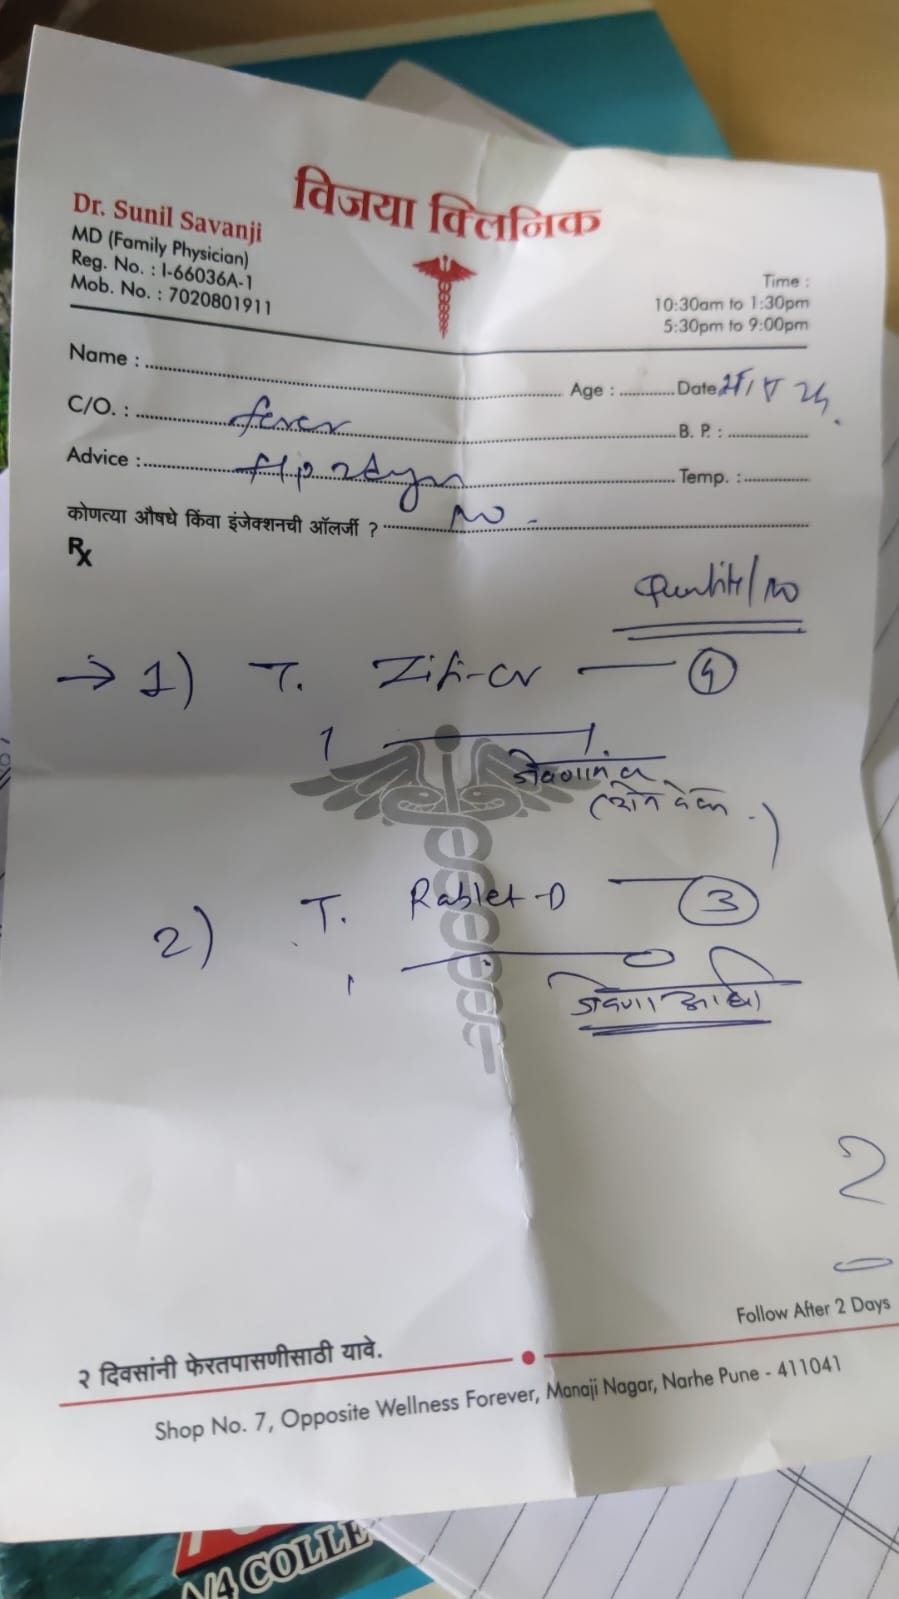 विजया क्लिनिक
Dr. Sunil Savanji
MD (Family Physician)
Reg. No. : I-66036A-1
Mob. No. : 7020801911
Time :
10:30am to 1:30pm
5:30pm to 9:00pm
Name :
Age : Date
C/O. : fever
B. P. :
Advice :
Temp. :
कोणत्या औषधे किंवा इंजेक्शनची ऑलर्जी ? NO -
Rx
/NO
→ 1) T. Zifi-CV — 4
1 — 1
2) T. Rablet-D — 3
1 — 0
जेवणाआधी
2
२ दिवसांनी फेरतपासणीसाठी यावे.
Follow After 2 Days
Shop No. 7, Opposite Wellness Forever, Manaji Nagar, Narhe Pune - 411041
A4 COLLE